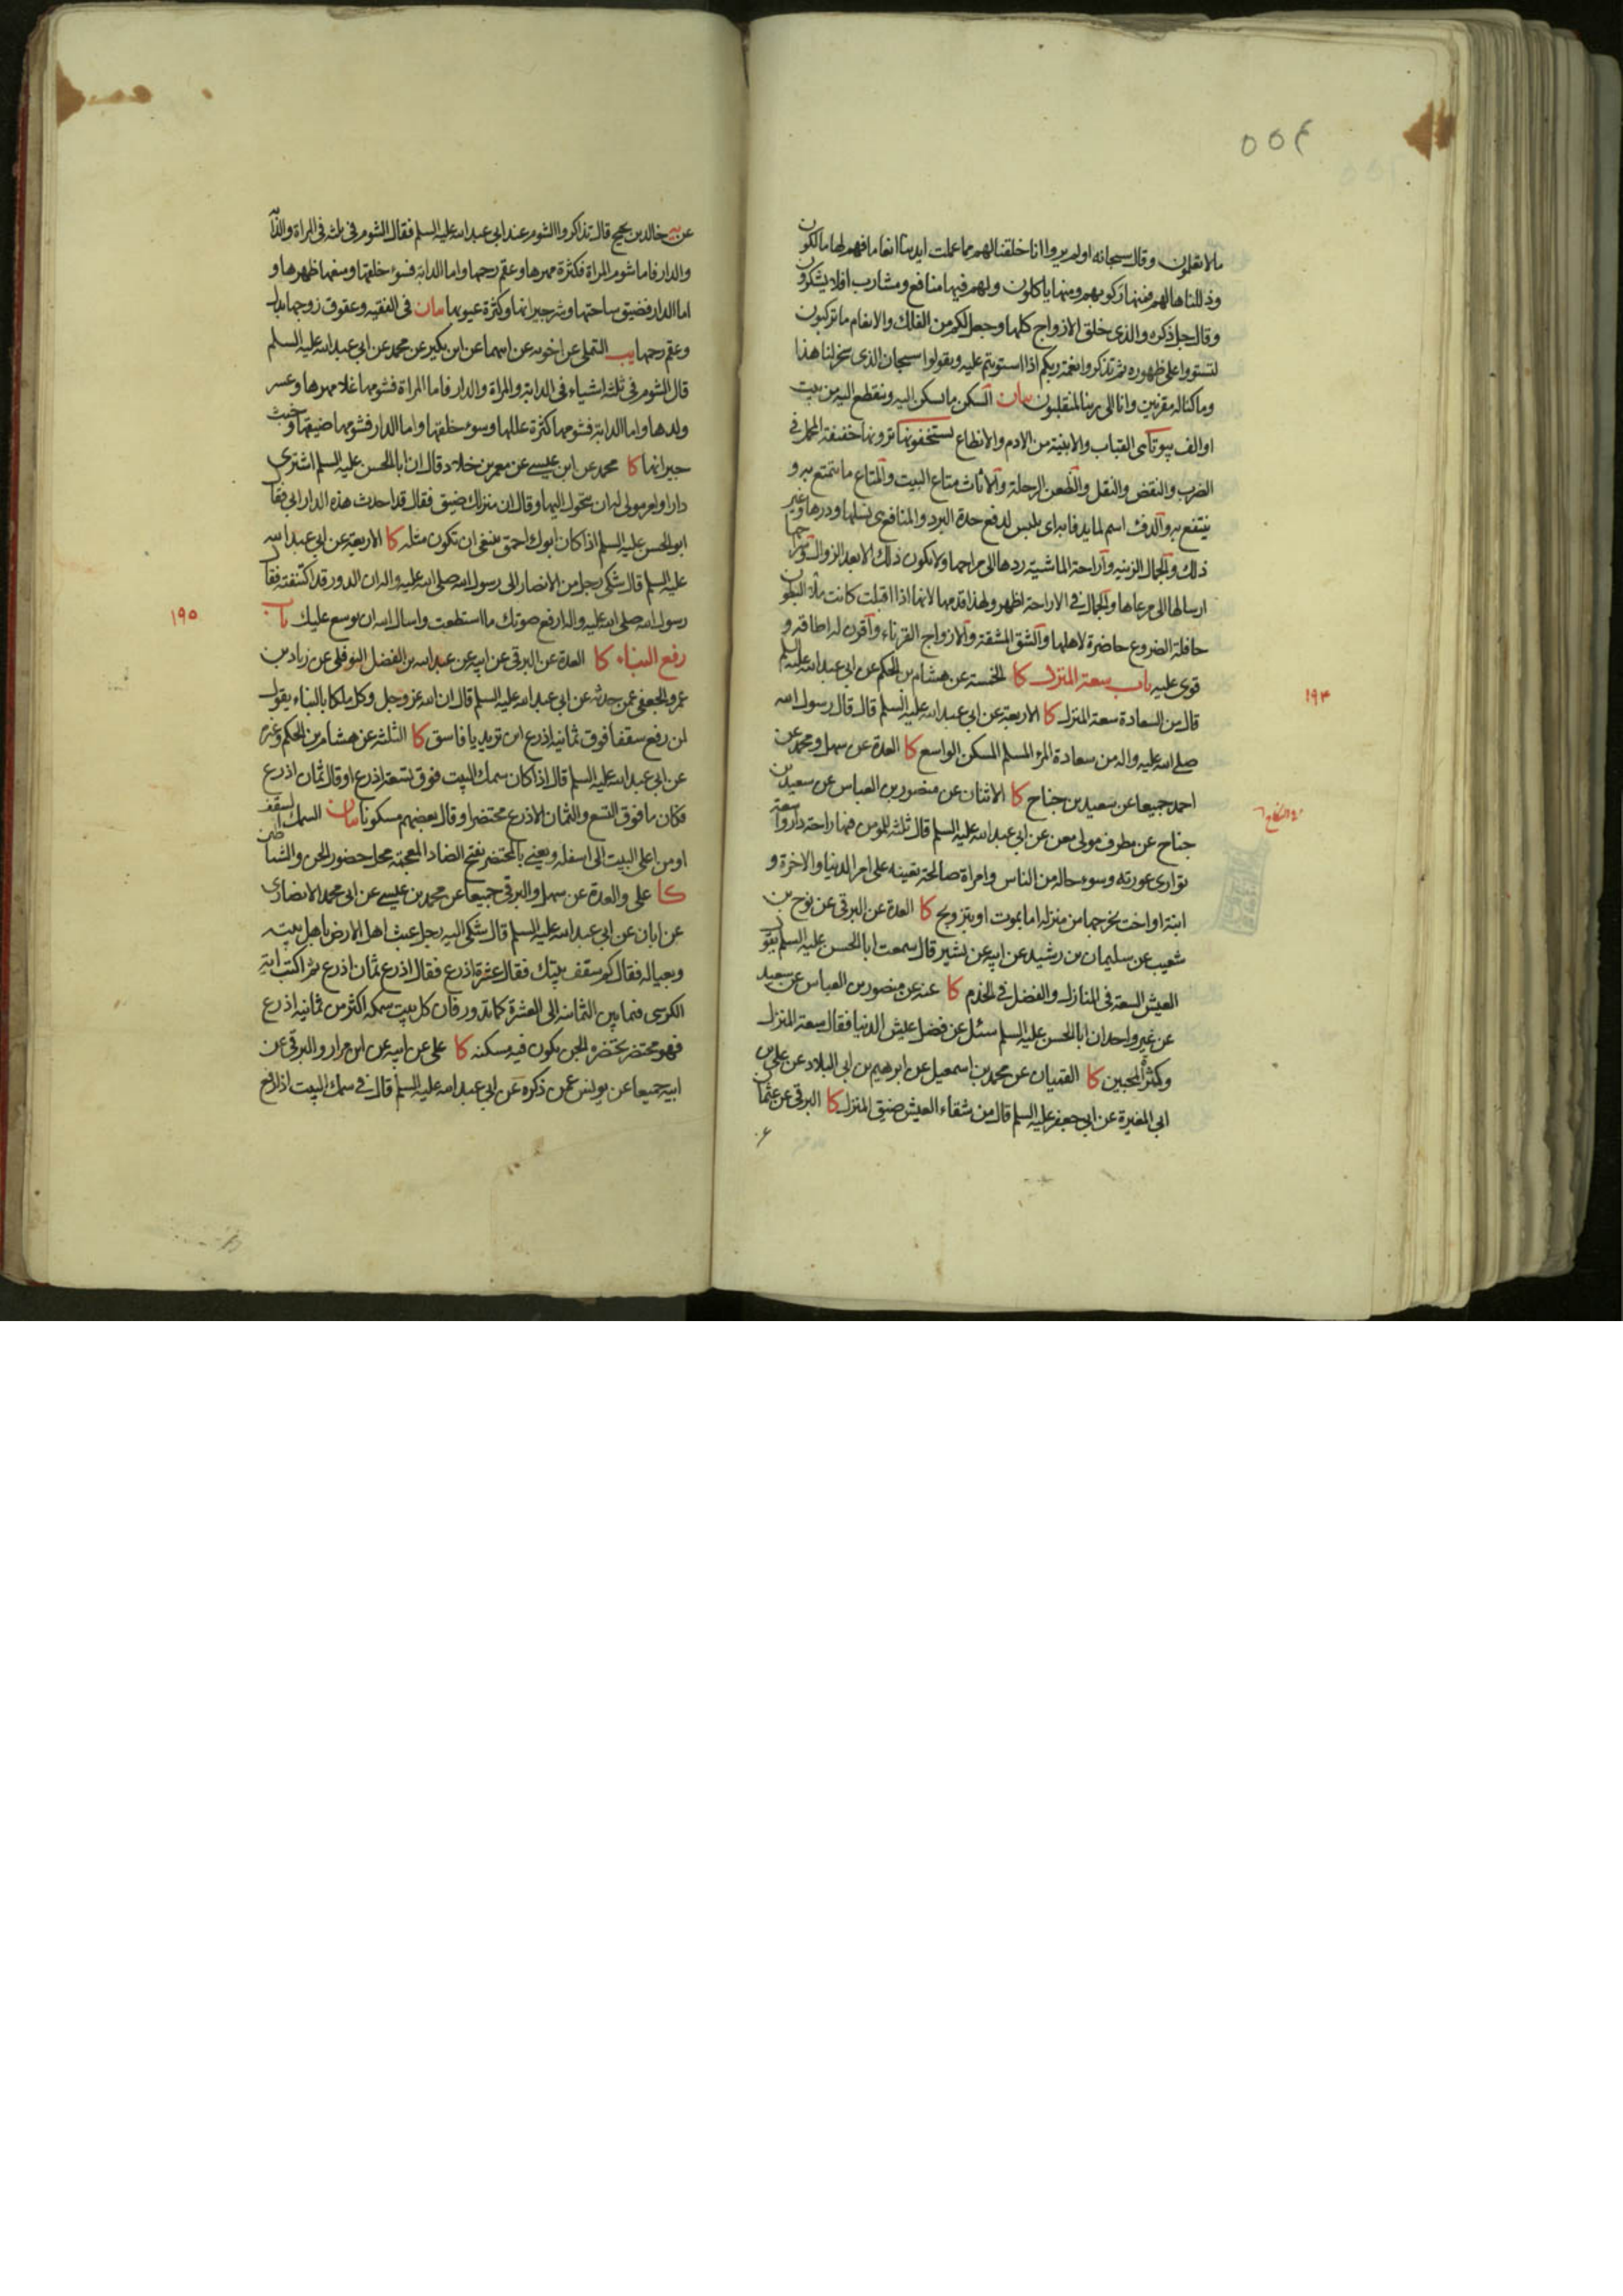 ٥٥٤
ما لا تعلمون وقال سبحانه اولم يروا انا خلقنا لهم مما عملت ايدينا انعاما فهم لها مالكون
وذللناها لهم فمنها ركوبهم ومنها ياكلون ولهم فيها منافع ومشارب افلا يشكرون
وقال جل ذكره والذى خلق الازواج كلها وجعل لكم من الفلك والانعام ما تركبون
لتستووا على ظهوره ثم تذكروا نعمة ربكم اذا استويتم عليه وتقولوا سبحان الذى سخر لنا هذا
وما كنا له مقرنين وانا الى ربنا لمنقلبون بيان السكن ما يسكن اليه وينقطع اليه من بيت
او الف بيوتا هى القباب والابنية من الادم والانطاع تستخفونها ترونها خفيفة المحمل فى
الضرب والنقض والنقل والظعن الرحلة والاثاث متاع البيت والمتاع ما يتمتع به و
ينتفع به والدفء اسم لما يدفا به اى يلبس لدفع حدة البرد والمنافع هى نسلها ودرها وغير
ذلك والجمال الزينه واراحة الماشية ردها الى مراحها ولا يكون ذلك الا بعد الزوال وتسريحها
ارسالها الى مرعاها والجمال فى الاراحة اظهر ولهذا قدمها لانها اذا اقبلت كانت ملأ البطون
حافلة الضروع حاضرة لاهلها والشق المشقة والازواج القرناء واقرن له اطاقه و
قوى عليه باب سعة المنزل كا الخمسة عن هشام بن الحكم عن ابى عبد الله عليه السلم
قال من السعادة سعة المنزل كا الاربعة عن ابى عبد الله عليه السلم قال قال رسول الله
صلى الله عليه واله من سعادة المرء المسلم المسكن الواسع كا العدة عن سهل ومحمد عن
احمد جميعا عن سعيد بن جناح كا الاثنان عن منصور بن العباس عن سعيد بن
جناح عن مطرف مولى معن عن ابى عبد الله عليه السلم قال ثلثة للمؤمن فيها راحة دار واسعة
توارى عورته وسوء حاله من الناس وامراة صالحة تعينه على امر الدنيا والاخرة و
ابنة او اخت يخرجها من منزله اما بموت او بتزويج كا العدة عن البرقى عن نوح بن
شعيب عن سليمان بن رشيد عن ابيه عن بشير قال سمعت ابا الحسن عليه السلم يقول
العيش السعة فى المنازل والفضل فى الخدم كا عنه عن منصور بن العباس عن سعيد
عن غير واحد ان ابا الحسن عليه السلم سئل عن فضل عيش الدنيا فقال سعة المنزل
وكثرة المحبين كا القميان عن محمد بن اسمعيل عن ابرهيم بن ابى البلاد عن على بن
ابى المغيرة عن ابى جعفر عليه السلم قال من شقاء العيش ضيق المنزل كا البرقى عن عثمان
١٩٤
عن يه خالد بن نجيح قال تذاكروا الشوم عند ابى عبد الله عليه السلم فقال الشوم فى ثلث فى المراة والدابة
والدار فاما شوم المراة فكثرة مهرها وعقم رحمها واما الدابة فسوء خلقها ومنعها ظهرها و
اما الدار فضيق ساحتها وشر جيرانها وكثرة عيوبها بيان فى الفقيه وعقوق زوجها بدل
وعقم رحمها يب التملى عن اخويه عن ابيهما عن ابن بكير عن محمد عن ابى عبد الله عليه السلم
قال الشوم فى ثلثة اشياء فى الدابة والمراة والدار فاما المراة فشومها غلاء مهرها وعسر
ولدها واما الدابة فشومها كثرة عللها وسوء خلقها واما الدار فشومها ضيقها وخبث
جيرانها كا محمد عن ابن عيسى عن معمر بن خلاد قال ان ابا الحسن عليه السلم اشترى
دارا وامر مولى له ان يتحول اليها وقال ان منزلك ضيق فقال قد احدث هذه الدار ابى فقال
ابو الحسن عليه السلم اذا كان ابوك احمق ينبغى ان تكون مثله كا الاربعة عن ابى عبد الله
عليه السلم قال شكى رجل من الانصار الى رسول الله صلى الله عليه واله ان الدور قد اكتنفته فقال
رسول الله صلى الله عليه واله ارفع صوتك ما استطعت واسال الله ان يوسع عليك باب
رفع البناء كا العدة عن البرقى عن ابيه عن عبد الله بن الفضل النوفلى عن زياد بن
عمرو الجعفى عمن حدثه عن ابى عبد الله عليه السلم قال ان الله عز وجل وكل ملكا بالبناء يقول
لمن رفع سقفا فوق ثمانية اذرع اين تريد يا فاسق كا الثلثة عن هشام بن الحكم وغيره
عن ابى عبد الله عليه السلم قال اذا كان سمك البيت فوق تسعة اذرع او قال ثمان اذرع
فكان ما فوق التسع والثمان الاذرع محتضرا وقال بعضهم مسكونا بيان السمك السقف
او من اعلى البيت الى اسفله ويعنى بالمحتضر بفتح الضاد المعجمة محل حضور الجن والشياطين
كا على والعدة عن سهل والبرقى جميعا عن محمد بن عيسى عن ابى محمد الانصارى
عن ابان عن ابى عبد الله عليه السلم قال شكى اليه رجل عبث اهل الارض باهل بيته
وبعياله فقال كم سقف بيتك فقال عشرة اذرع فقال اذرع ثمان اذرع ثم اكتب اية
الكرسى فيما بين الثمانية الى العشرة كما تدور فان كل بيت سمكه اكثر من ثمانية اذرع
فهو محتضر تحتضره الجن يكون فيه مسكنه كا على عن ابيه عن ابن مرار والبرقى عن
ابيه جميعا عن يونس عمن ذكره عن ابى عبد الله عليه السلم قال فى سمك البيت اذا رفع
١٩٥